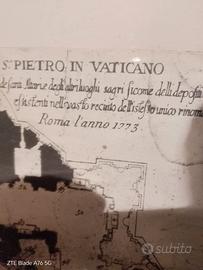 S. PIETRO IN VATICANO
de santi Altari e degli altri luoghi sagri sicome delli deposti
esistenti nell vasto recinto dell'istesso unico rinom
Roma l'anno 1773.
ZTE Blade A76 5G
subito